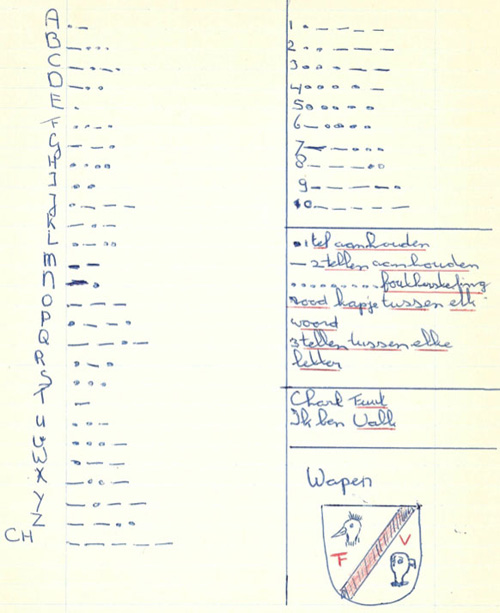 A .-
B -...
C -.-.
D -..
E .
F ..-.
G --.
H ....
I ..
J .---
K -.-
L .-..
M --
N -.
O ---
P .--.
Q --.-
R .-.
S ...
T -
U ..-
V ...-
W .--
X -..-
Y -.--
Z --..
CH ----
1 .----
2 ..---
3 ...--
4 ....-
5 .....
6 -....
7 --...
8 ---..
9 ----.
10 -----
. 1 tel aanhouden
- 2 tellen aanhouden
........ foutherstelling
rood hapje tussen elk
woord
3 tellen tussen elke
letter
Ik ben Valk
Wapen
F V